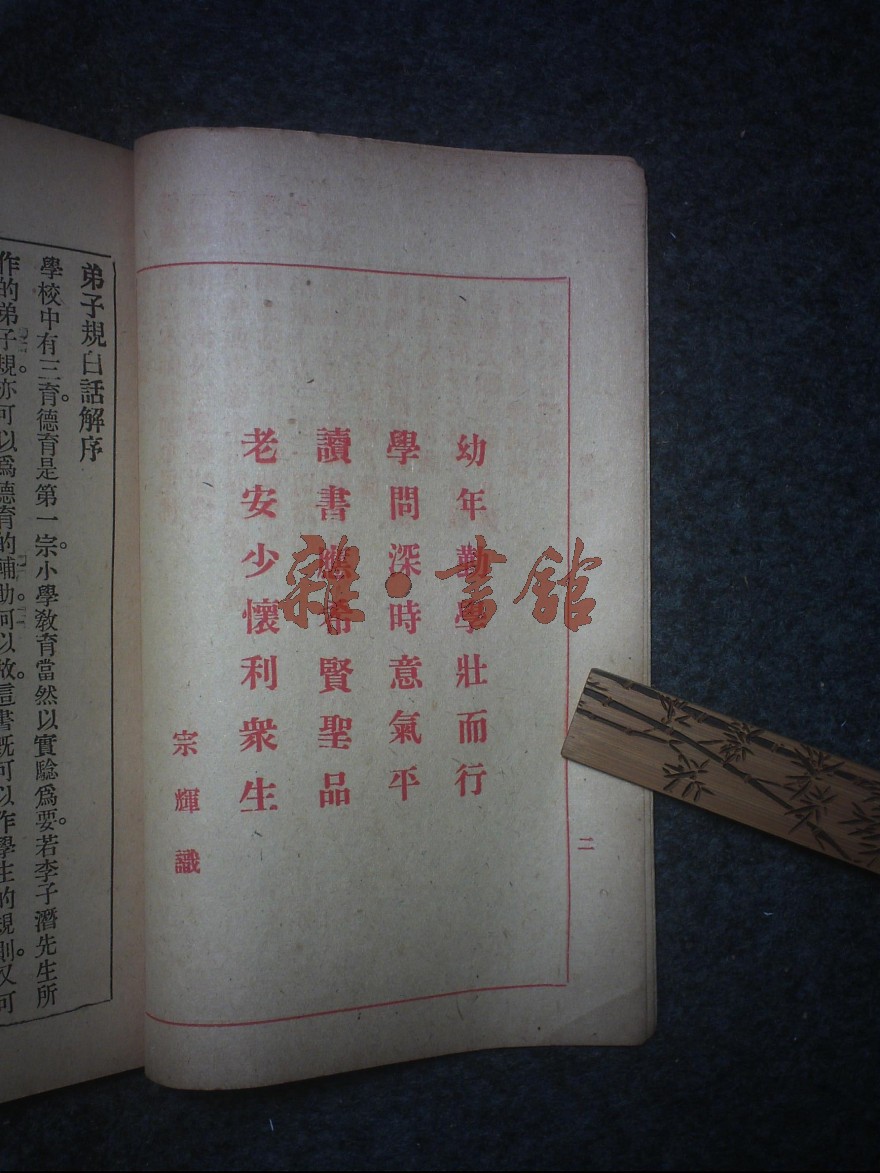 幼年勤學壯而行
學問深時意氣平
讀書應希賢聖品
老安少懷利衆生
宗輝識
二
弟子規白話解序
學校中有三育。德育是第一宗。小學教育當然以實驗爲要。若李子潛先生所
作的弟子規。亦可以爲德育的輔助。可以放。這書既可以作學生的規則。又可
雜·書館